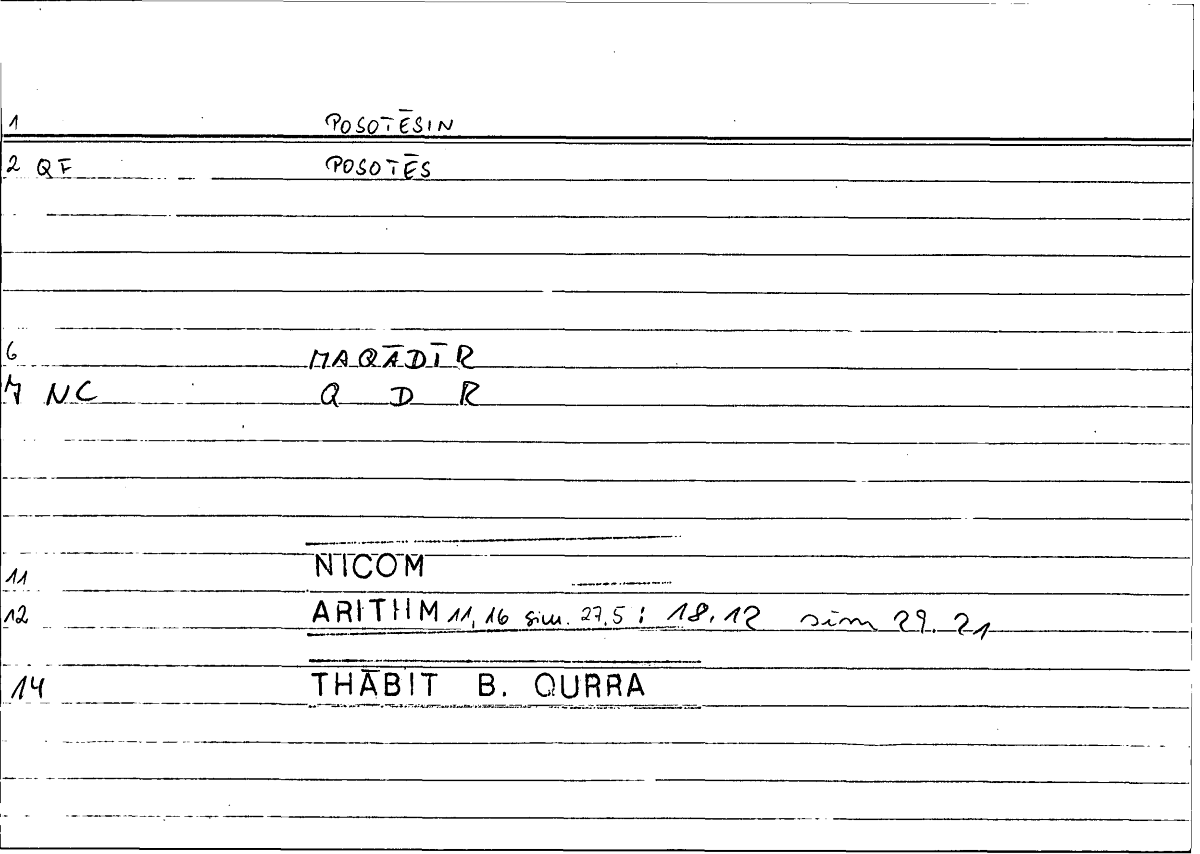 1 POSOTĒSIN
2 QF POSOTĒS
6 MAQĀDĪR
7 NC Q D R
11 NICOM
12 ARITHM 11, 16 sim. 27,5 : 18.12 sim 29.21
14 THĀBIT B. QURRA